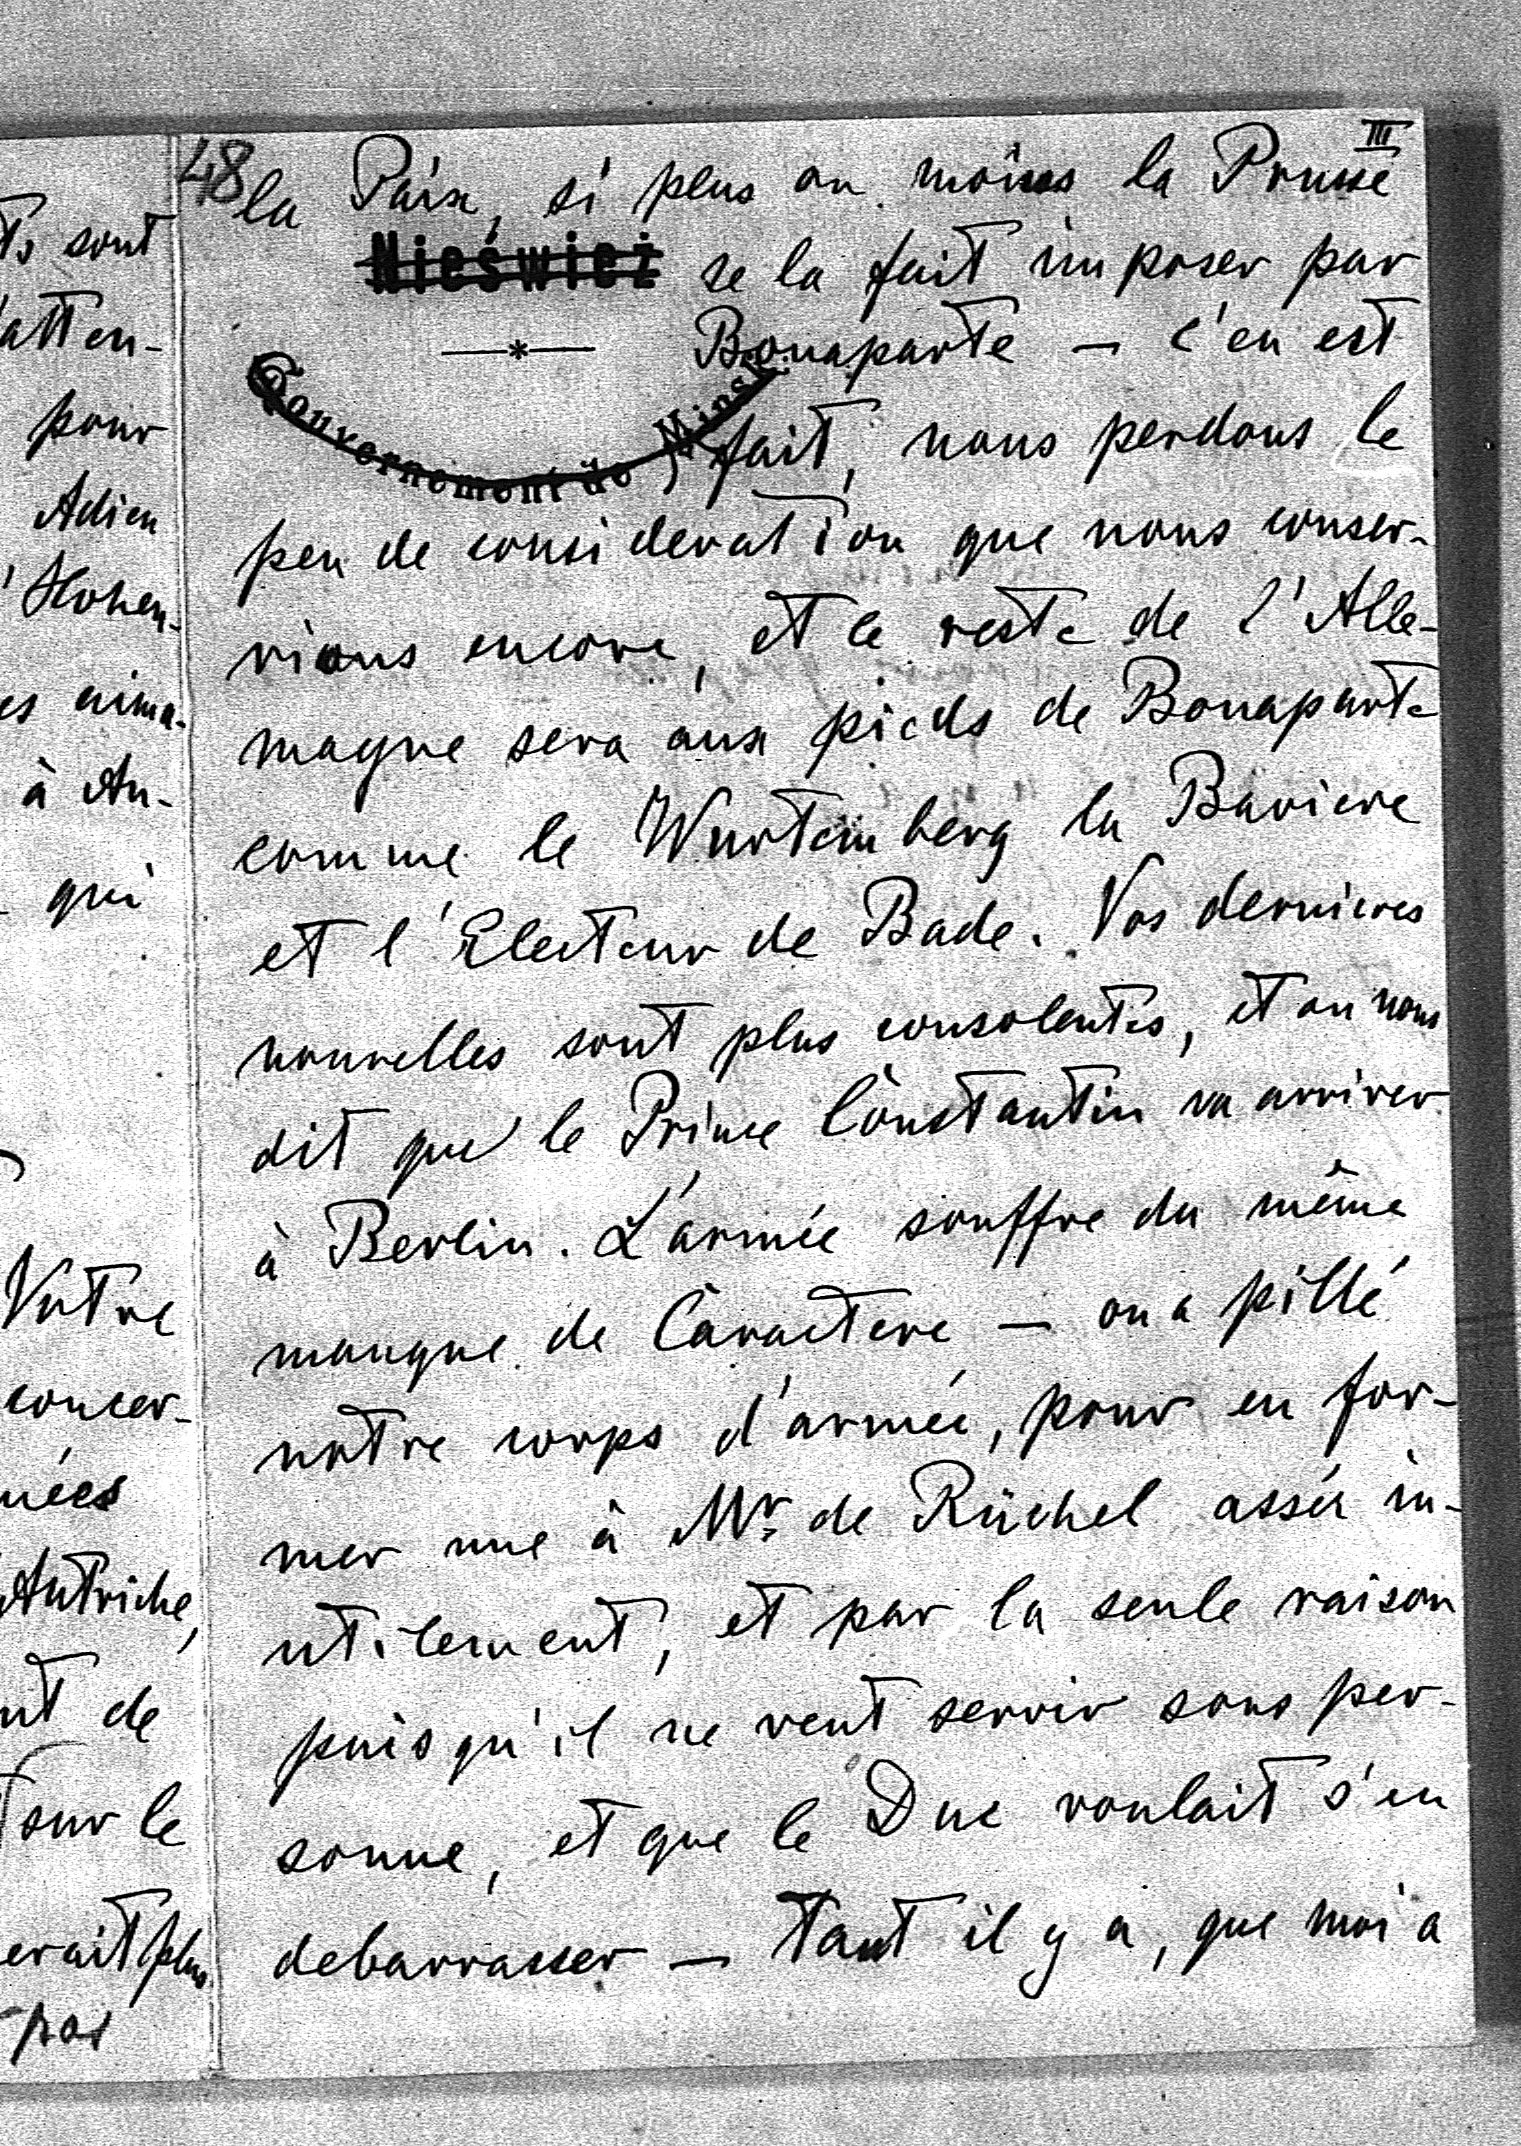 48
III
la Paix, si plus ou moins la Prusse
Nieśwież
se la fait imposer par
Bonaparte — c'en est
Gouvernement de Minsk.
fait, nous perdons le
peu de consideration que nous conser-
vions encore, et le reste de l'Alle-
magne sera aux pieds de Bonaparte
comme le Wurtemberg la Baviere
et l'Electeur de Bade. Vos dernieres
nouvelles sont plus consolentes, et on nous
dit que le Prince Constantin va arriver
à Berlin. L'armée souffre du même
manque de Caractere — on a pillé
notre corps d'armée, pour en for-
mer une à Mr. de Rüchel assés in-
utilement, et par la seule raison
puisqu'il ne veut servir sous per-
sonne, et que le Duc voulait s'en
debarrasser — Tant il y a, que moi a
ts sont
atten-
pour
Adieu
Hohen-
es aima-
à Au-
qui
Votre
concer-
nées
Autriche,
nt de
sur le
erait plus
pas